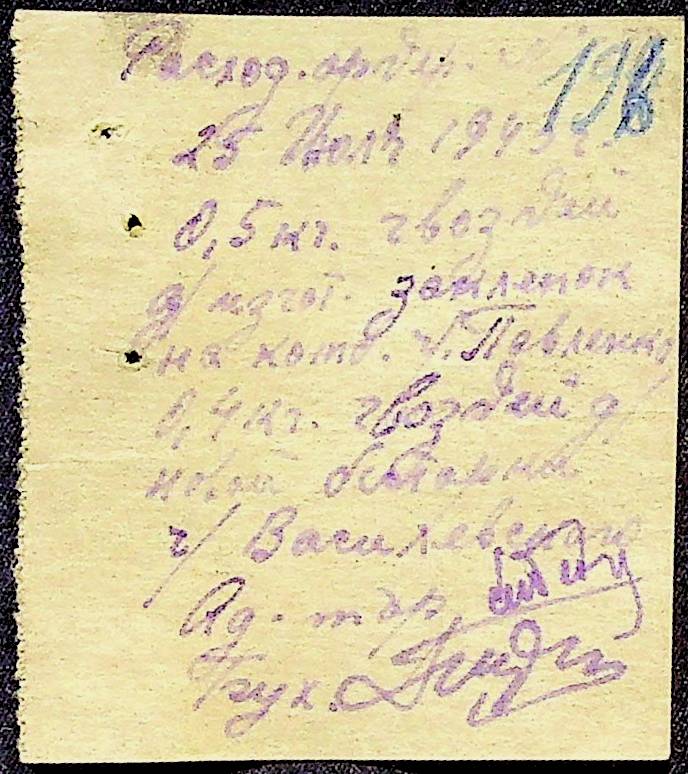 Расход. ордер. №
198
25 Июля 1943 г.
0,5 кг. гвоздей
д/ изгот. заклепок
на комб. т. Павленко
0,4 кг. гвоздей д/
новой
г/ Василевского
Ад.
Трух.